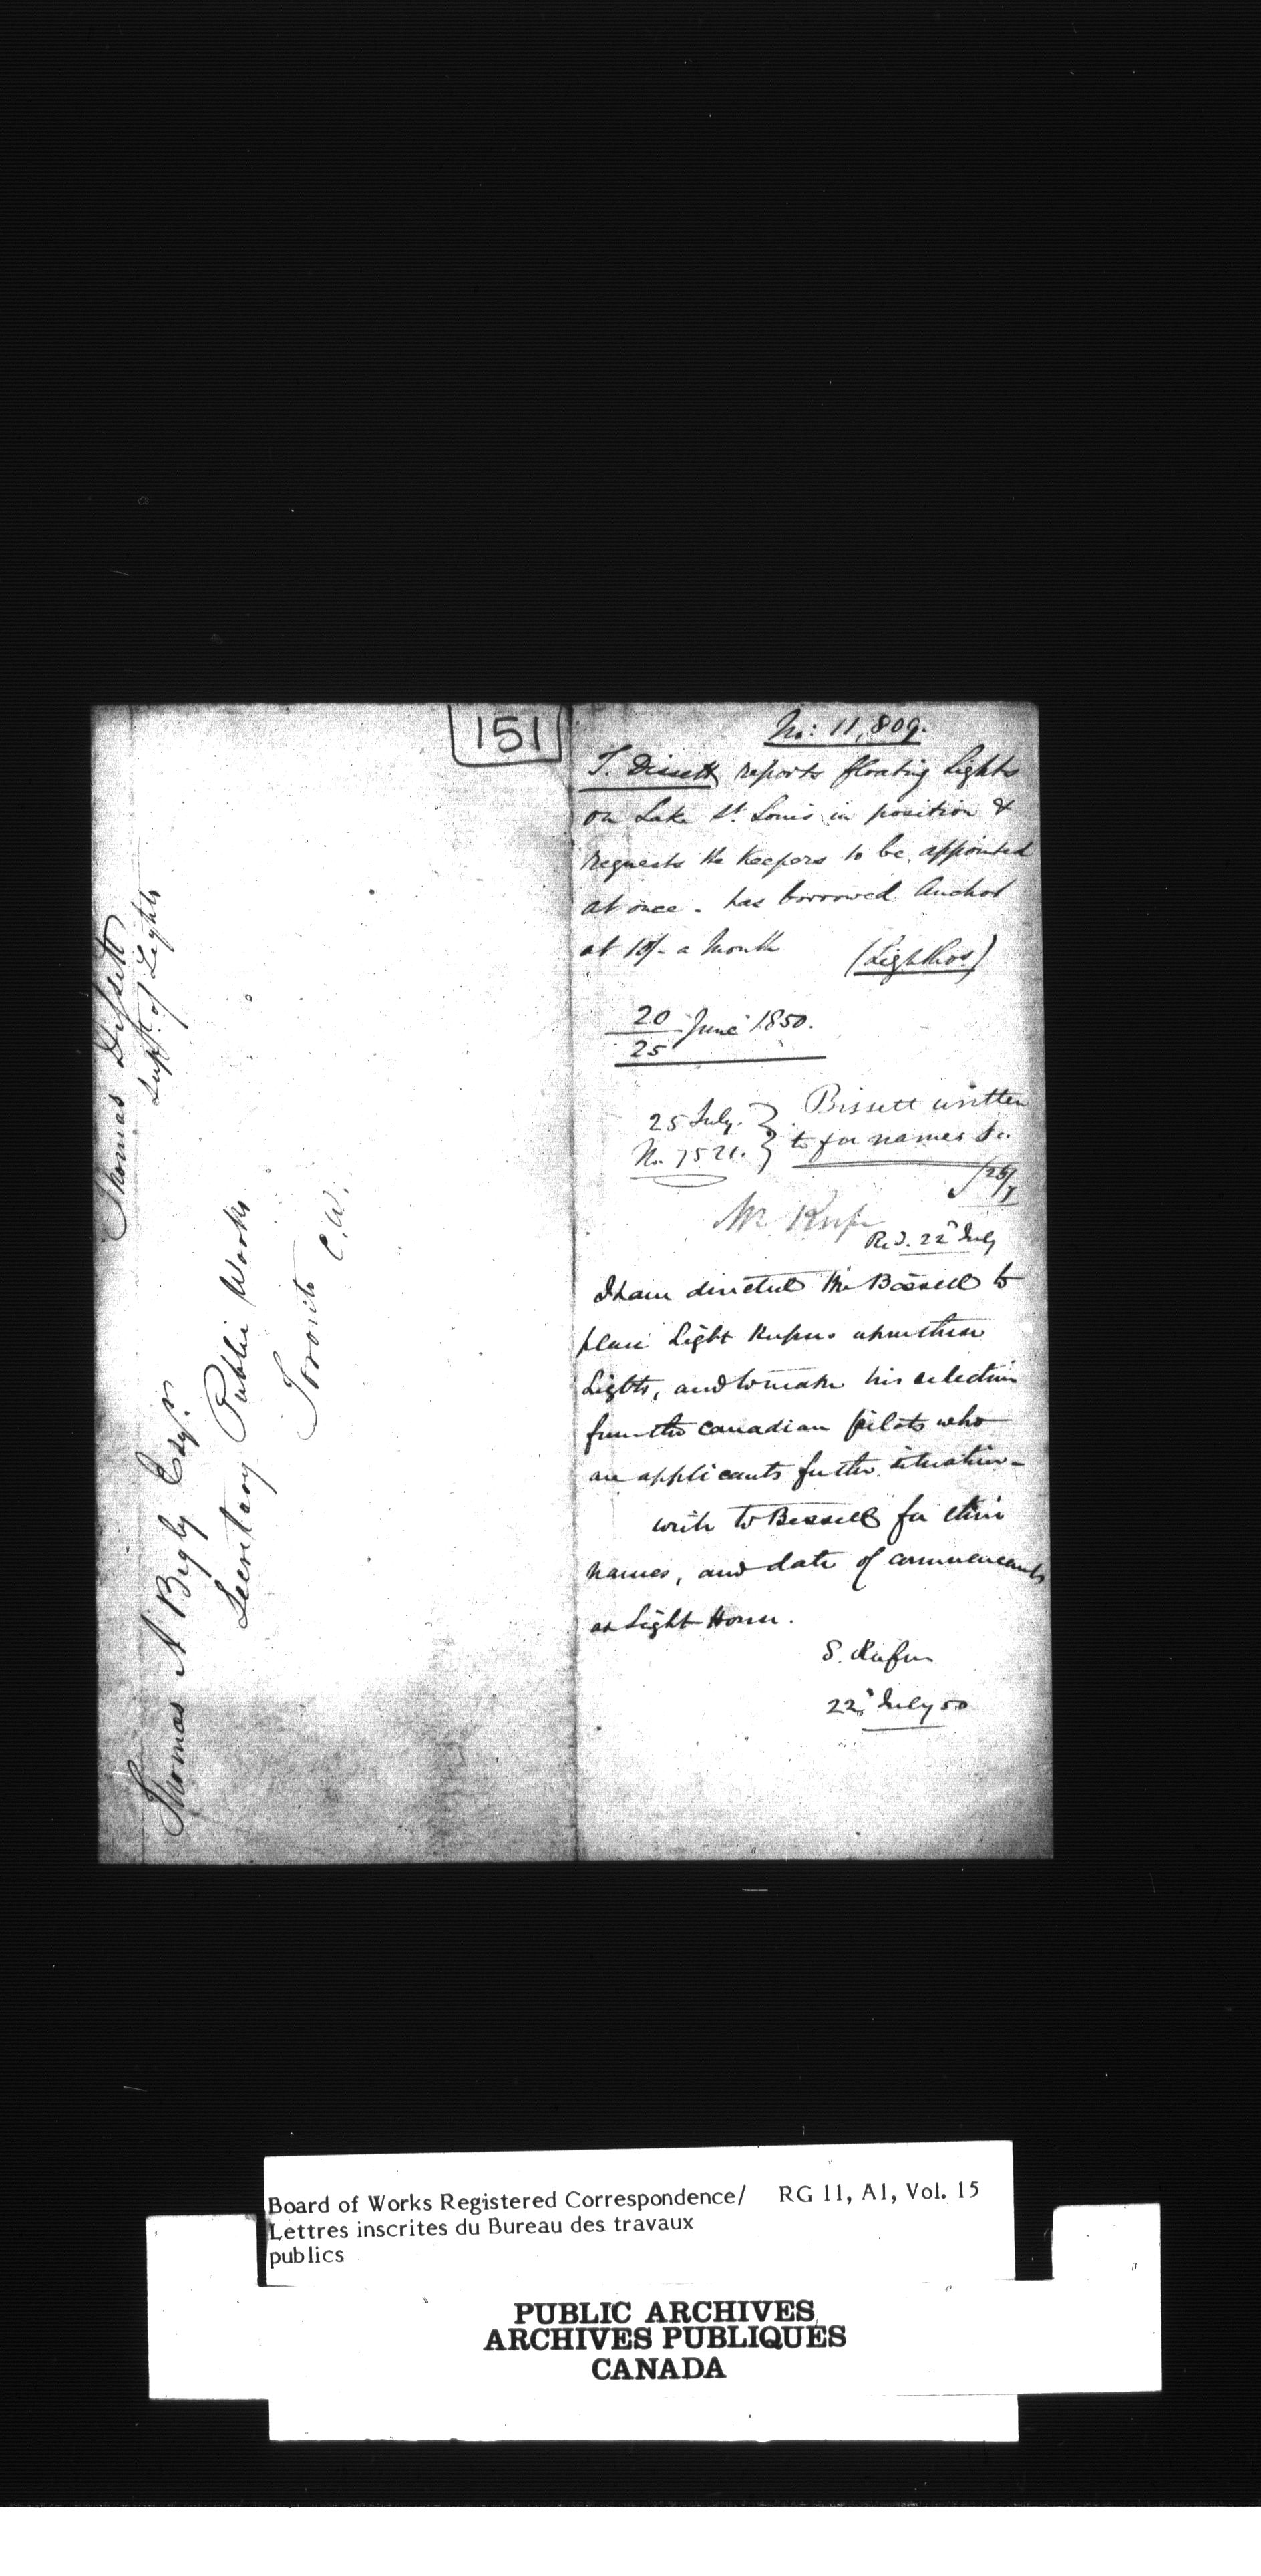 151
Thomas Dissett
Supt. of Lights
Thomas A Begly Esqr.
Secretary Public Works
Toronto C.W.
No: 11,809.
T. Dissett reports floating Lights
on Lake St. Louis in position &
requests the Keepers to be appointed
at once - has borrowed Anchor
at 10/- a Month (Lighthos)
20
25 June 1850.
25 July. } Bissett written
No. 7521. } to for names &c.
25/7
Mr
Red. 22d July
I have directed Mr Bissett to
place Light Keepers upon these
Lights, and to make his selection
from the Canadian pilots who
are applicants for the situation -
write to Bissett for their
names, and date of
as Light House.
S. Keefer
22d July 50
Board of Works Registered Correspondence/ RG 11, A1, Vol. 15
Lettres inscrites du Bureau des travaux
publics
PUBLIC ARCHIVES
ARCHIVES PUBLIQUES
CANADA